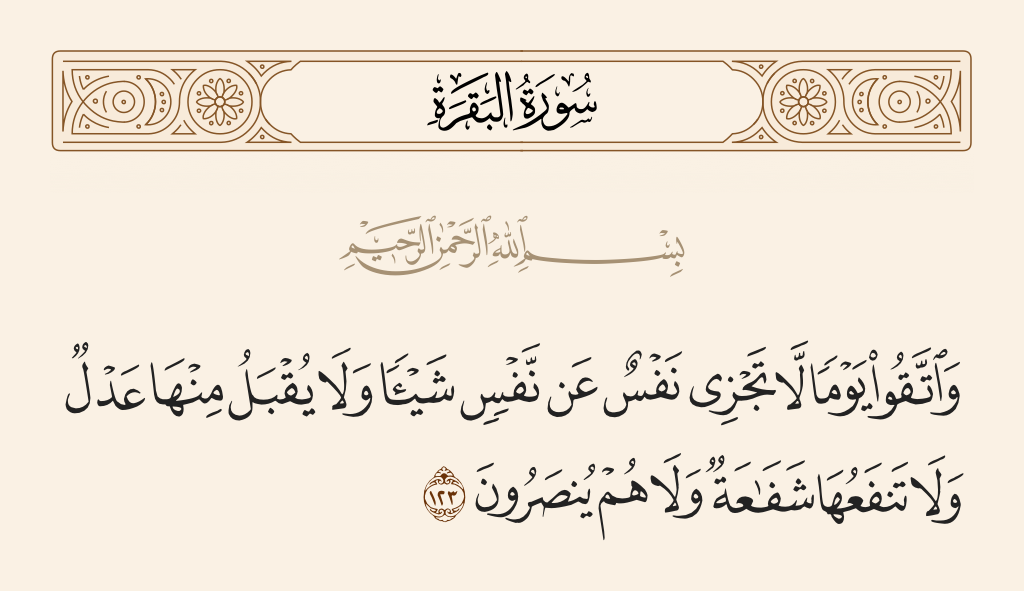 سُورَةُ البَقَرَةِ
بِسْمِ ٱللَّهِ ٱلرَّحْمَٰنِ ٱلرَّحِيمِ
وَٱتَّقُوا۟ يَوْمًا لَّا تَجْزِى نَفْسٌ عَن نَّفْسٍ شَيْـًٔا وَلَا يُقْبَلُ مِنْهَا عَدْلٌ
وَلَا تَنفَعُهَا شَفَٰعَةٌ وَلَا هُمْ يُنصَرُونَ ١٢٣